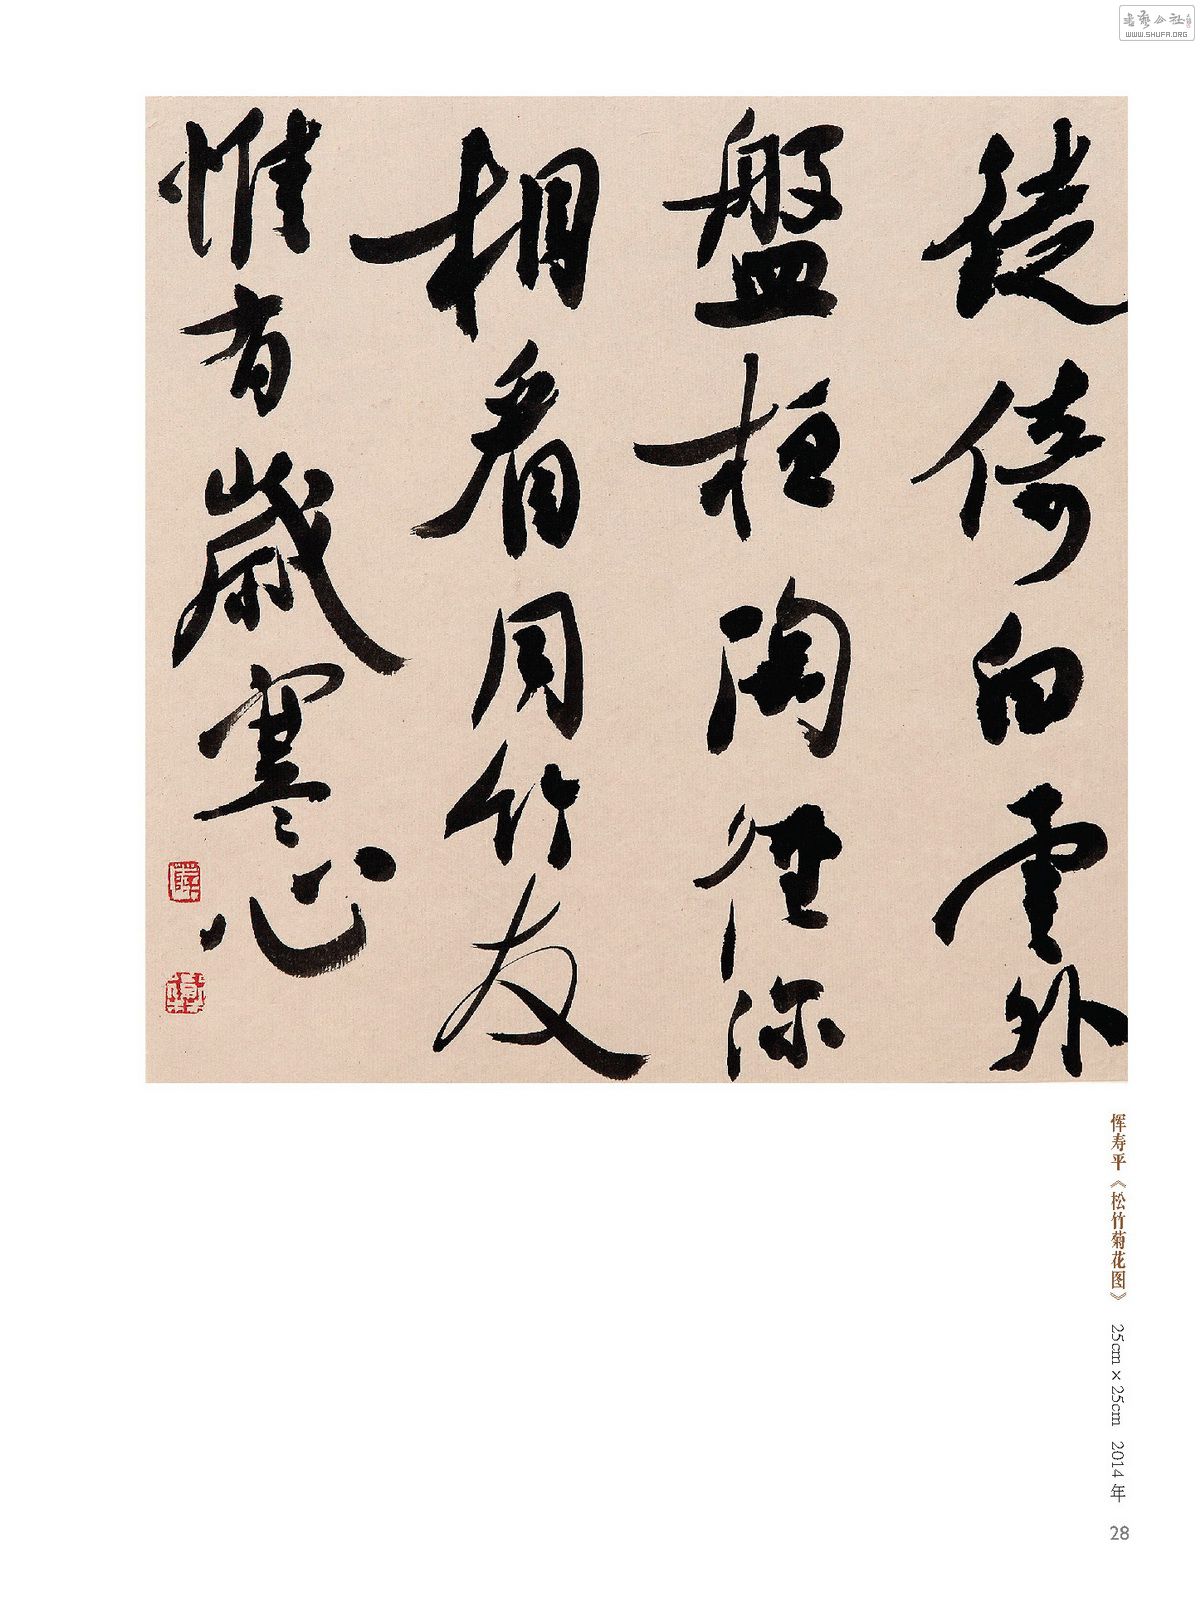 徒倚白雲外
盤桓陶徑深
相看同竹友
惟有歲寒心
恽寿平《松竹菊花图》 25cm×25cm 2014年
28
WWW.SHUFA.ORG